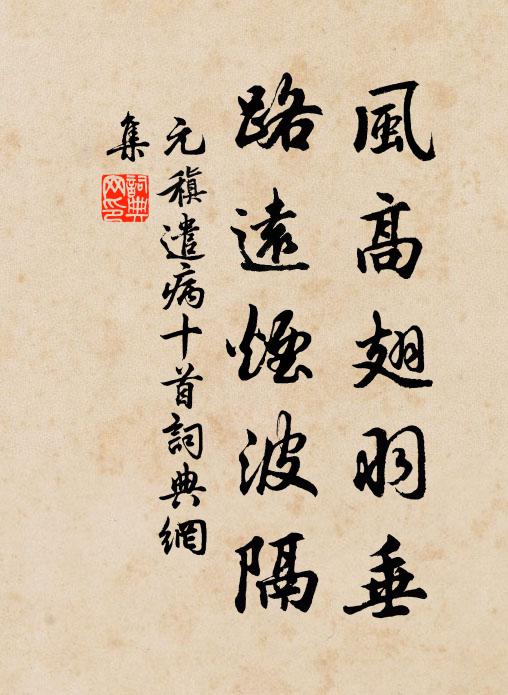 風高翅羽垂
路遠煙波隔
元稹遣病十首詞典網
集
詞典
网印